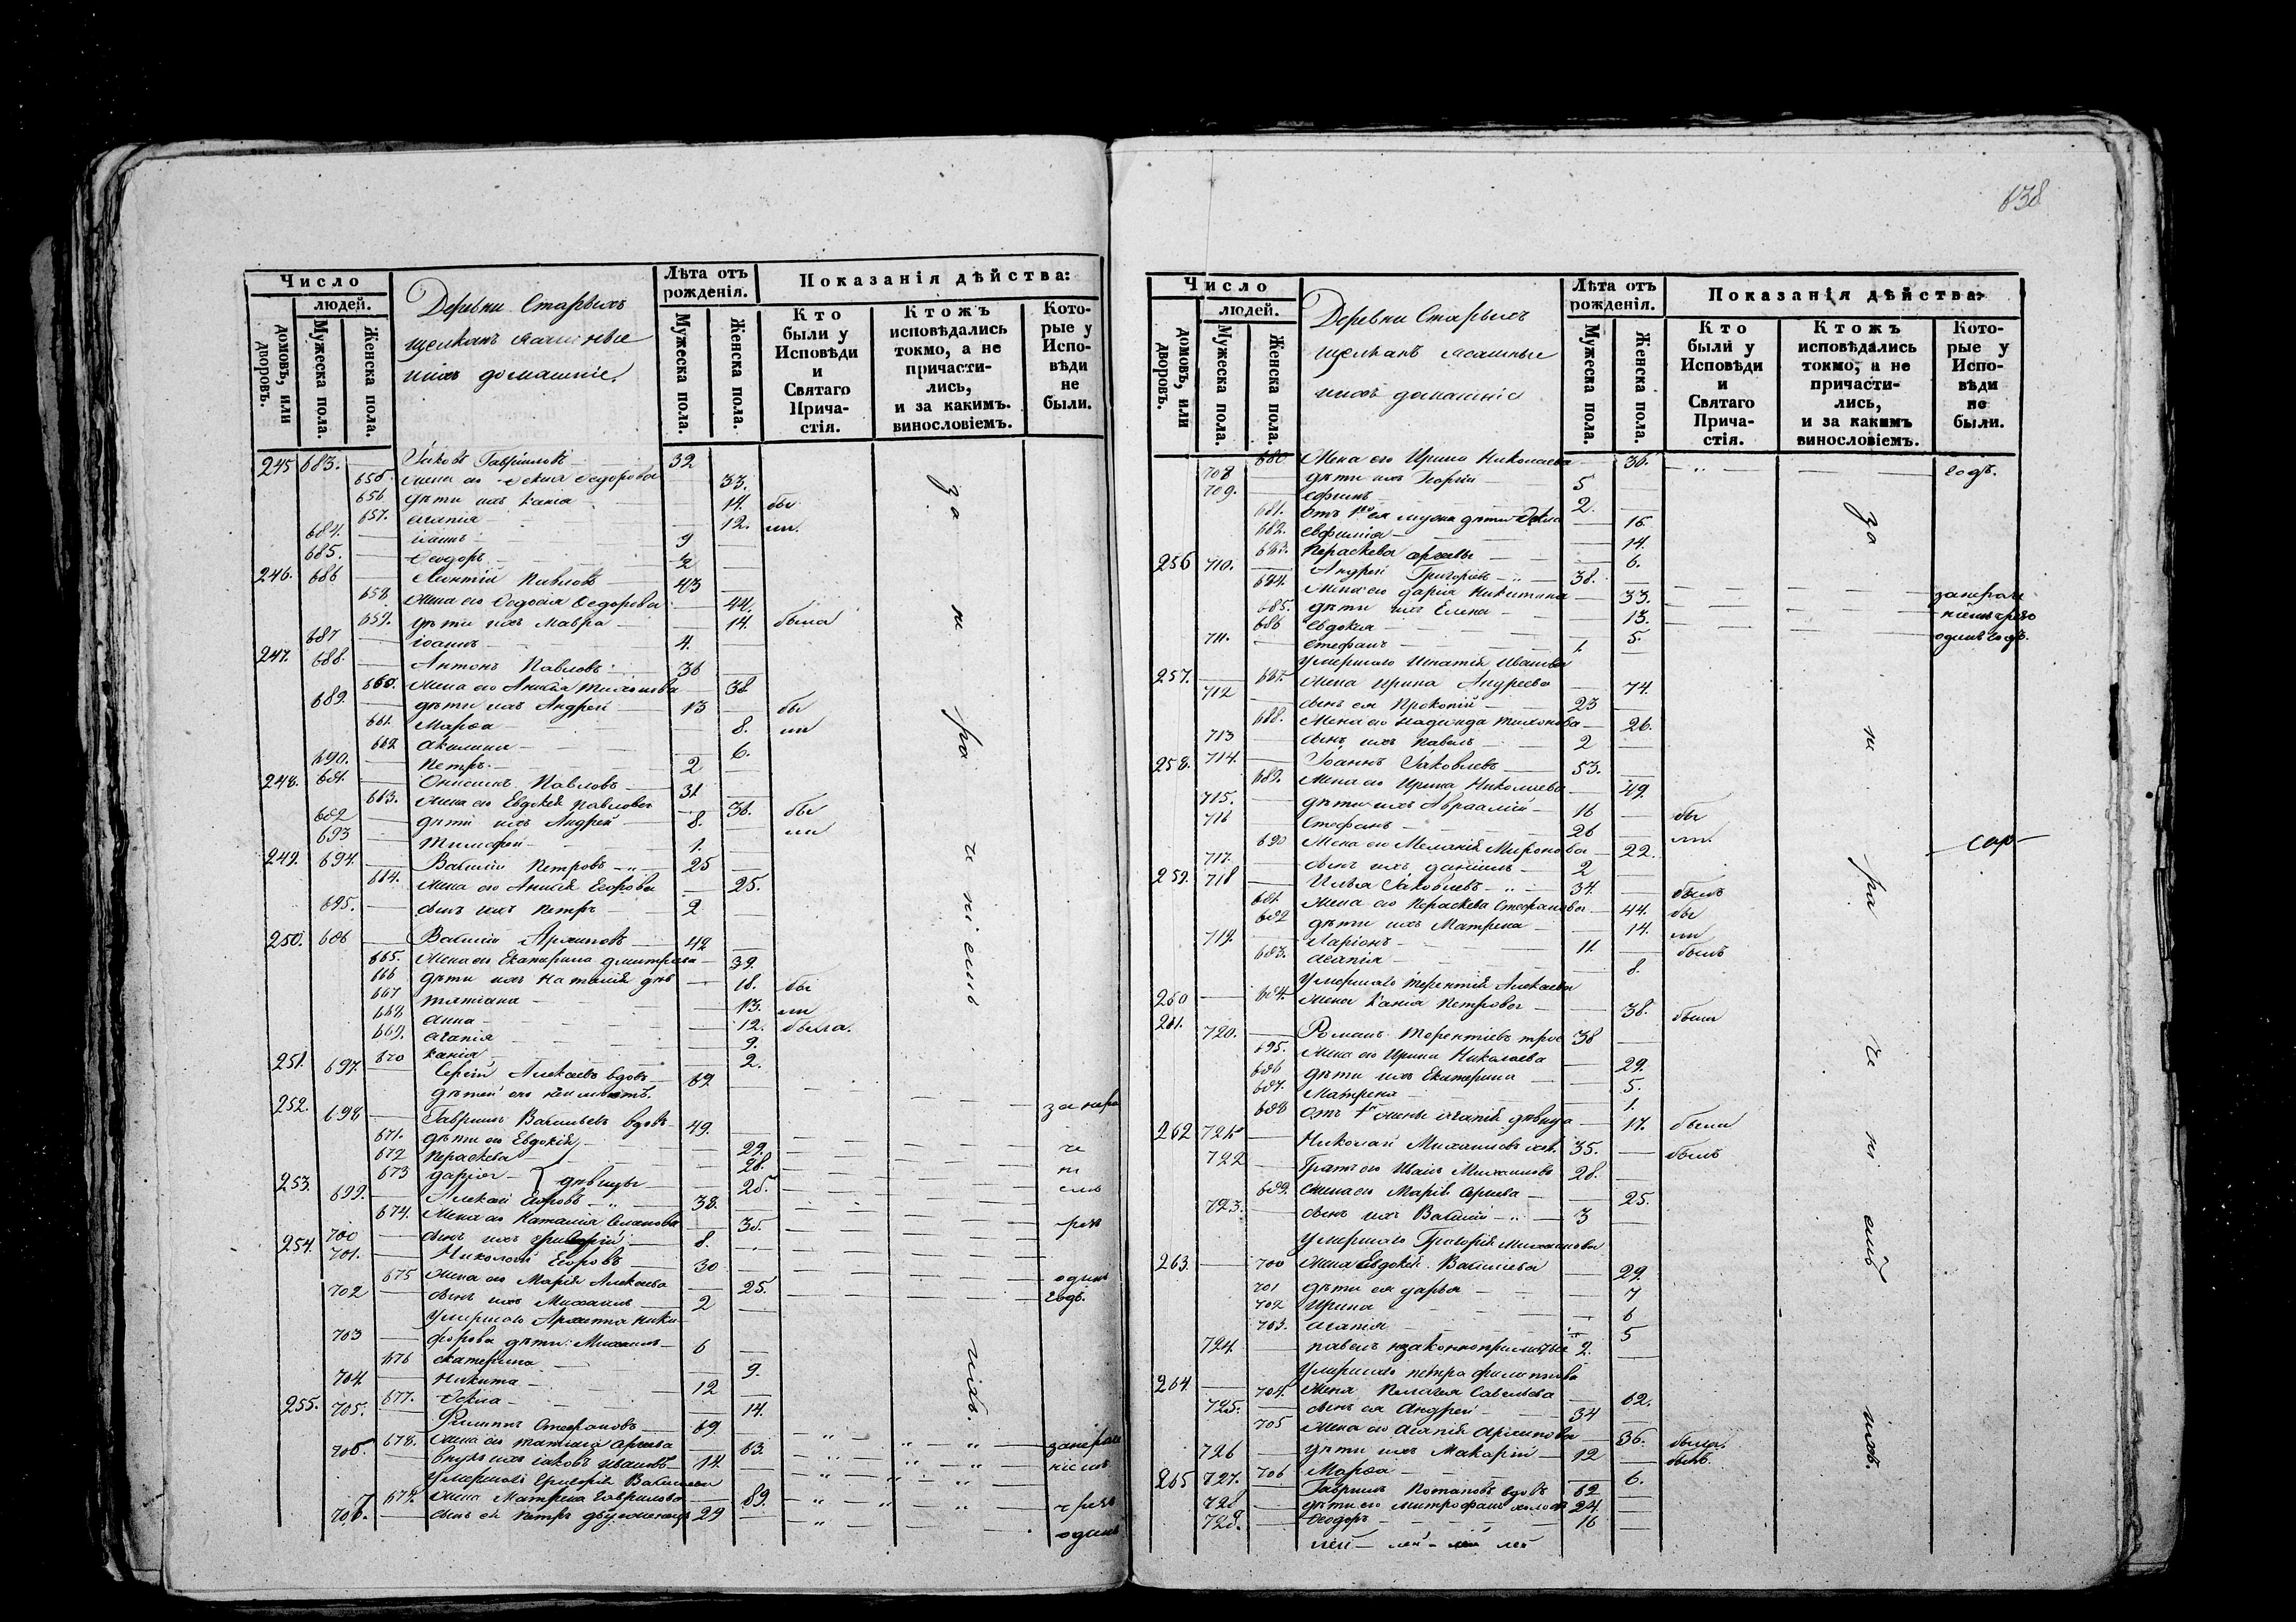 638
Число
людей.
домовъ, или дворовъ.
Мужеска пола.
Женска пола.
Деревни Старыхъ
щелканъ
ихъ домашніе.
Лѣта отъ рожденія.
Мужеска пола.
Женска пола.
Показанія дѣйства:
Кто были у Исповѣди и Святаго Причастія.
Ктожъ исповѣдались токмо, а не причастились, и за какимъ. винословіемъ.
Которые у Исповѣди не были.
245 683. Іаковъ Гавріиловъ 32
655. жена его Ѳекла Ѳедорова 33.
656. дѣти ихъ Ксенія 14. бы
657. Агапія 12. ли.
684. Іоаннъ 9
685. Ѳеодоръ 2
246. 686 Леонтій Павловъ 43
658. жена его Ѳедосія Ѳедорова 44.
659. дѣти ихъ Мавра 14. была
687 Іоаннъ 4.
247. 688. Антонъ Павловъ 36
660. жена его Анисія 38
689. дѣти ихъ Андрей 13 бы
661. Марѳа 8. ли
662 Акилина 6.
690. Петръ 2
248. 691. Онисимъ Павловъ 31
663. жена его Евдокія Павлова 31. бы
692 дѣти ихъ Андрей 8. ли
693 Тимофей 1.
249. 694. Василій Петровъ 25
664. жена его Анисія Егорова 25.
695. сынъ ихъ Петръ 2
250. 696 Василій Архиповъ 42
665. жена его Екатерина Дмитріева 39.
666 дѣти ихъ Наталія дѣв 18. бы
667 Татіана 13. ли
668 Анна 12. была.
669. Агапія 9.
670 Ксенія 2.
251. 697. Сергій Алексѣевъ вдовъ 69
дѣтей его
252. 698 Гавріилъ Васильевъ вдовъ 49.
671. дѣти его Евдокія 29.
672 Параскева 28.
673 Дарія дѣвицы 25.
253. 699. Алексѣй Егоровъ 38.
674. жена его Наталія 35.
700 сынъ ихъ Григорій 8.
254. 701. Николай Егоровъ 30
675 жена его Марія Алексѣева 25.
702 сынъ ихъ Михаилъ 2
Умершаго Архипа Ники-
703 форова дѣти: Михаилъ 6
676 Екатерина 9.
704 Никита 12
677. Ѳекла 14.
255. 705. Филиппъ Стефановъ 69.
678. жена его Татіана 63.
706. внукъ ихъ Іаковъ Ивановъ 14
Умершаго Григорія Васильева
679. жена Матрена Гаврилова 69.
706. сынъ ея Петръ 29
за не ра че ні емъ ихъ.
занера
че
ні
емъ
чрез
одинъ
годъ.
занера
ніемъ
чрезъ
одинъ
Число
людей.
домовъ, или дворовъ.
Мужеска пола.
Женска пола.
Деревни Старыхъ
щелканъ
ихъ домашніе
Лѣта отъ рожденія.
Мужеска пола.
Женска пола.
Показанія дѣйства:
Кто были у Исповѣди и Святаго Причастія.
Ктожъ исповѣдались токмо, а не причастились, и за какимъ винословіемъ.
Которые у Исповѣди не были.
680 жена его Ирина Николаева 36. годъ.
708 дѣти ихъ Георгій 5
709. Ефимъ 2.
681. отъ 1го ея мужа дѣти Ѳекла 16
682. Евфимія 14.
683. Параскева 6.
256 710. Андрей Григорьевъ 38.
684. жена его Дарія Никитина 33.
685. дѣти ихъ Елена 13.
686 Евдокія 5.
711. Стефанъ 1.
Умершаго Игнатія Иванова
257. 687. жена Ирина Андреева 74.
712 сынъ ея Прокопій 23
688. жена его Надежда 26.
713 сынъ ихъ Павелъ 2
258. 714. Іоаннъ Іаковлевъ 53.
689. жена его Ирина Николаева 49.
715. дѣти ихъ Авраамій 16 бы
716 Стефанъ 26 ли
690 жена его Меланія Миронова 22.
717. сынъ ихъ Даніилъ 2
259. 718 Илья Іаковлевъ 34. былъ
691 жена его Параскева Стефанова 44. бы
692 дѣти ихъ Матрена 14. ли
719. Ларіонъ 11. былъ
693. Агапія 8.
Умершаго Терентія Алексѣева
260 694. жена Ксенія Петрова 38. были
261. 720. Романъ Терентіевъ 38
695. жена его Ирина Николаева 29.
696 дѣти ихъ Екатерина 5.
697. Матрена 1.
698 отъ 1й жены Агапія дѣвица 17. были
262 721 Николай Михаиловъ хол. 35. былъ
722 Братъ его Иванъ Михаиловъ 28.
699. жена его Марія Сергеева 25.
723. сынъ ихъ Василій 3
Умершаго Григорія Михаилова
263. 700 жена Евдокія Васильева 29.
701 дѣти ея Дарья 7
702 Ирина 6
703. Агапія 5
724. Павелъ незаконноприжитый 2.
Умершаго Петра Филиппова
264 704. жена Пелагея Савельева 62.
725. сынъ ея Андрей 34
705 жена его Агапія Архипова 36. была.
726 дѣти ихъ Макарій 12 былъ.
706 Марѳа 6.
265 727. Гавріилъ Потаповъ вдовъ 62
728 дѣти его Митрофанъ холостъ 24.
729. Ѳеодоръ 16
за не ра че ні емъ ихъ.
занерач
ніемъ чрезъ
одинъ годъ.